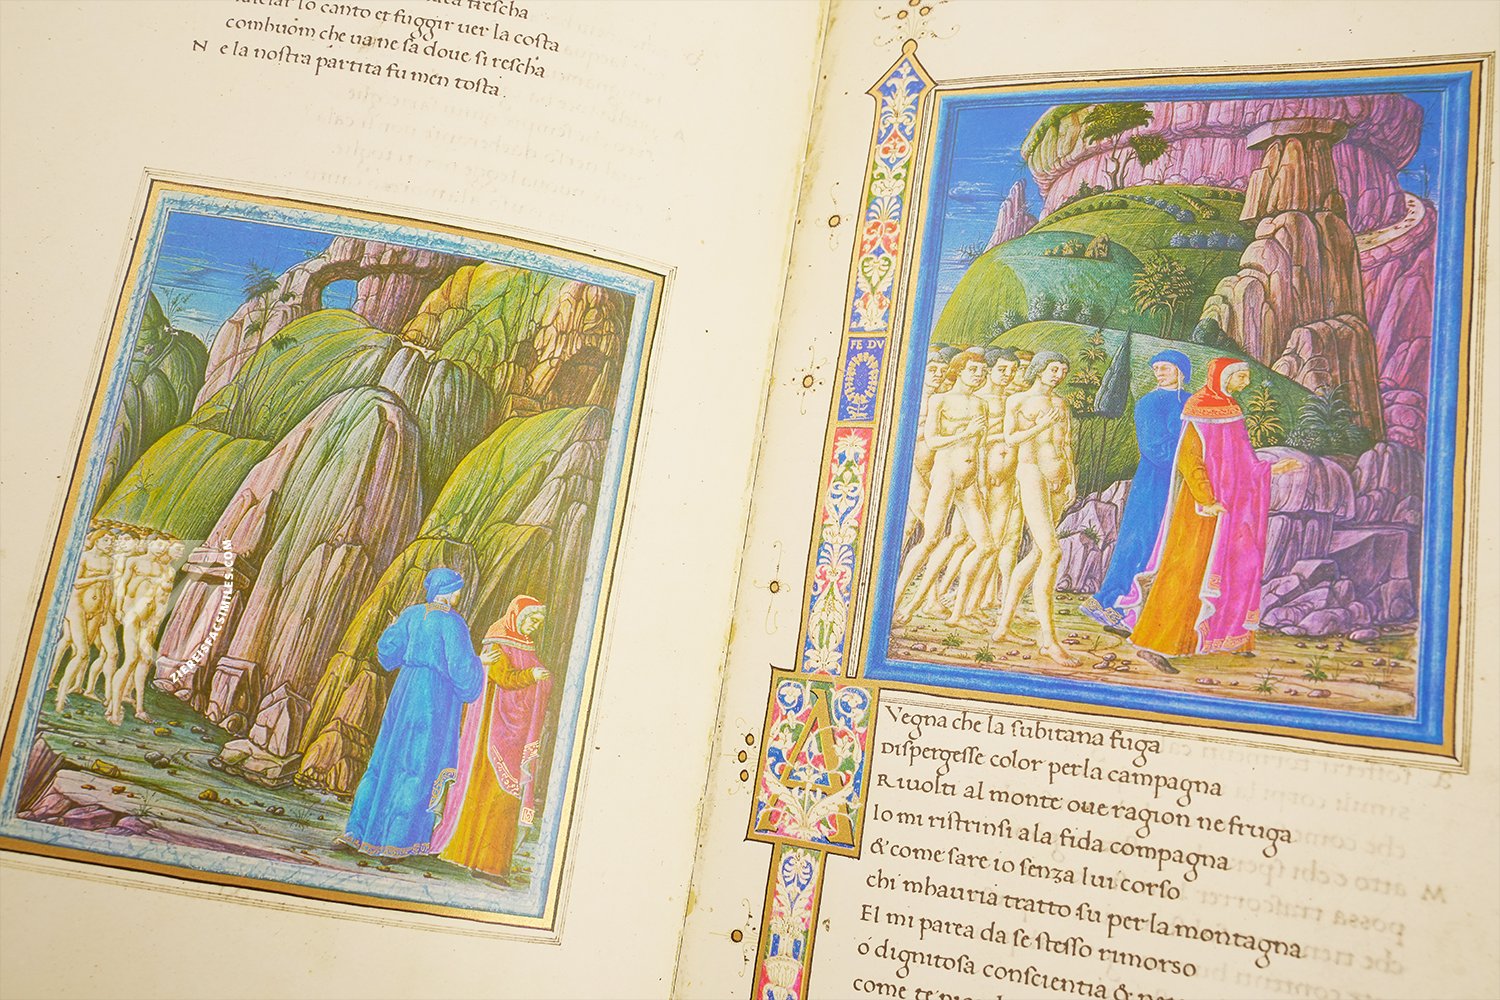 lo canto et fuggir uer la costa
combuom che ua ne sa doue si rescha
N e la nostra partita fu men tosta
FE DV
A
Vegna che la subitana fuga
Dispergesse color per la campagna
Riuolti al monte oue ragion ne fruga
Io mi ristrinsi a la fida compagna
& come sare io senza lui corso
chi mhauria tratto su per la montagna
El mi parea da se stesso rimorso
o dignitosa conscientia &
come te
ZIEREISFACSIMILES.COM